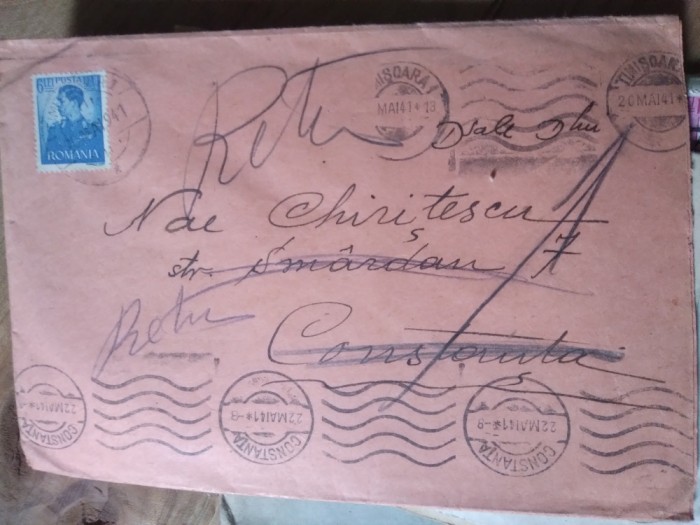 6 LEI POSTA
ROMANIA
TIMIȘOARA 1
MAI41*-18
TIMIȘOARA
20 MAI 41*
Retur
Dsale Dlui
Nae Chirițescu
str. Smârdan 7
Retur
Constanța
22MAI41*-8
CONSTANȚA
22MAI41*-8
CONSTANȚA
22MAI41*-8
CONSTANȚA